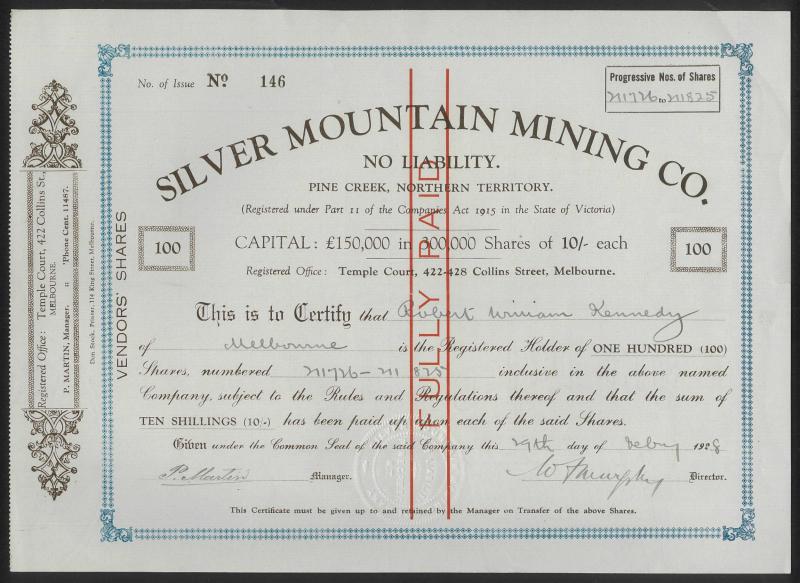 No. of Issue No 146
Progressive Nos. of Shares
211726 to 211825
SILVER MOUNTAIN MINING CO.
NO LIABILITY.
PINE CREEK, NORTHERN TERRITORY.
(Registered under Part 11 of the Companies Act 1915 in the State of Victoria)
100
CAPITAL: £150,000 in 300,000 Shares of 10/- each
100
Registered Office: Temple Court, 422-428 Collins Street, Melbourne.
This is to Certify that Robert William Kennedy
of Melbourne is the Registered Holder of ONE HUNDRED (100)
Shares, numbered 211726 - 211825 inclusive in the above named
Company, subject to the Rules and Regulations thereof and that the sum of
TEN SHILLINGS (10/-) has been paid up upon each of the said Shares.
Given under the Common Seal of the said Company this 29th day of Febry 1928
P. Martin Manager.
W Murphy Director.
This Certificate must be given up to and retained by the Manager on Transfer of the above Shares.
FULLY PAID
VENDORS' SHARES
Registered Office: Temple Court, 422 Collins St.,
MELBOURNE.
P. MARTIN, Manager. :: 'Phone Cent. 11487.
Don. Stock, Printer, 116 King Street, Melbourne.